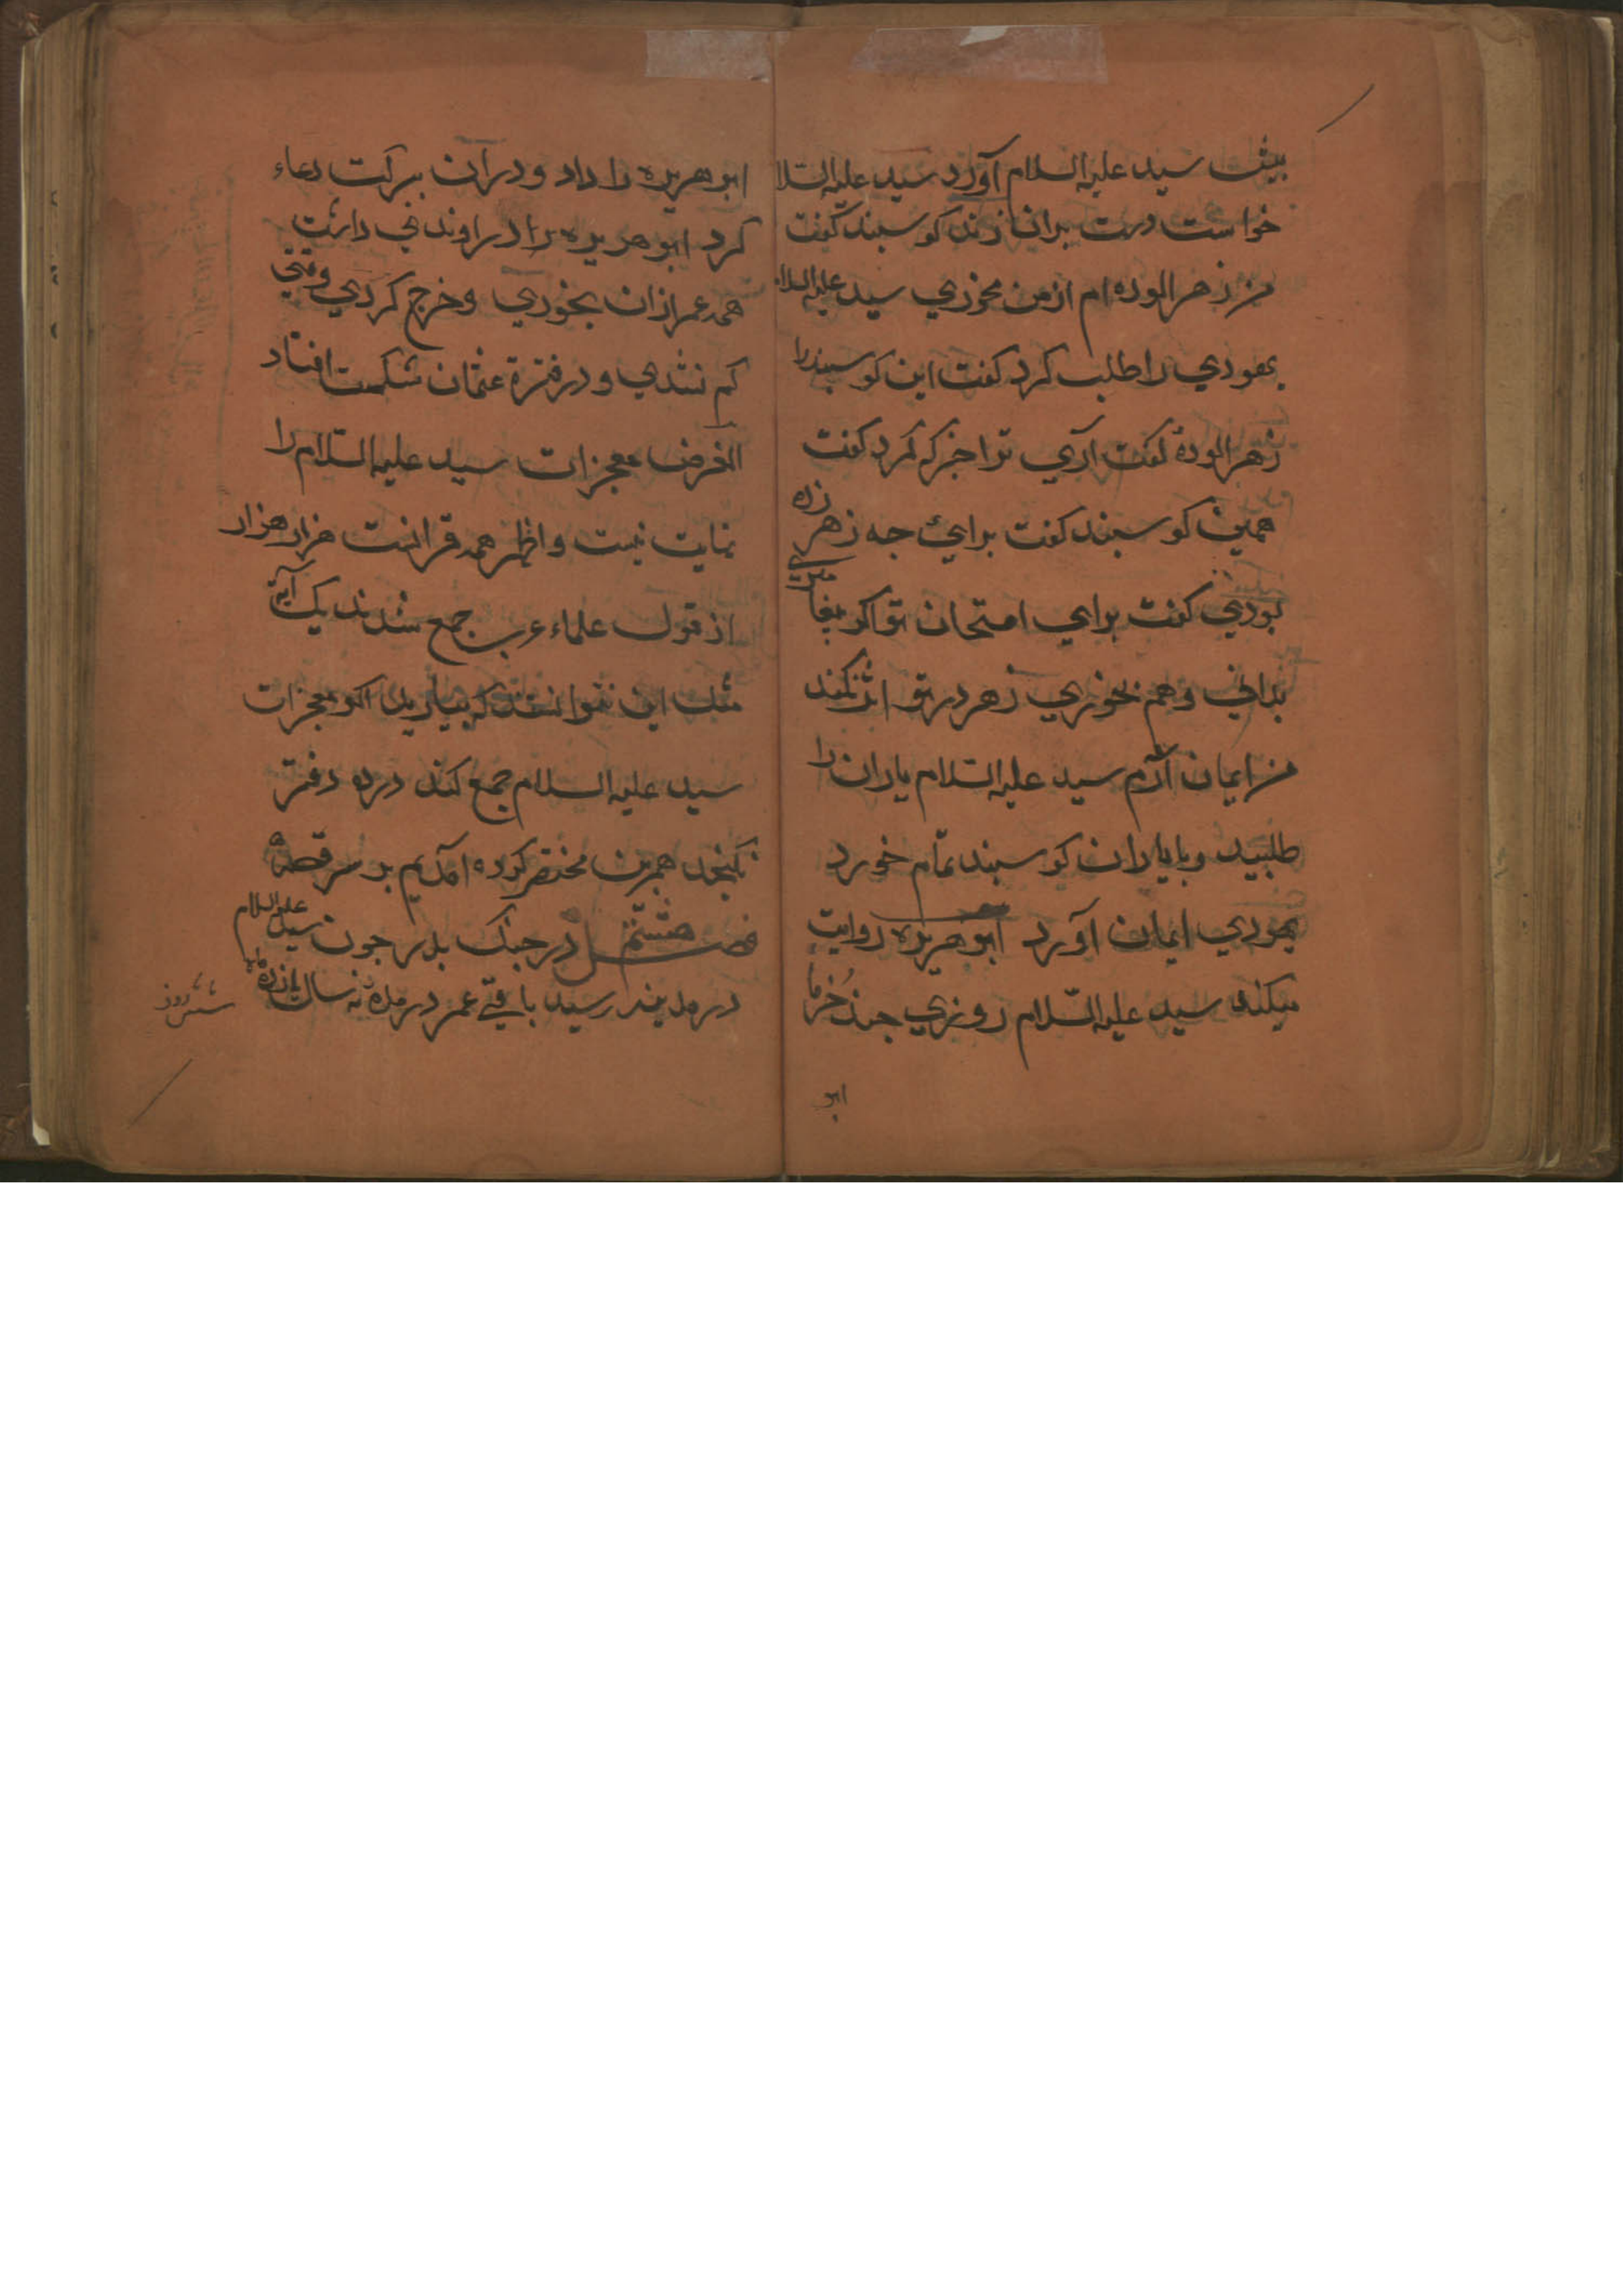 بیش سید علیه السلام آورد سید علیه السلا
خواست دست بران زند کوسبند کفت
من زهر الوده ام از من مخوری سید علیه السلا
یهودی را طلب کرد کفت این کوسبند را
زهر الوده کفت آری ترا خبر که کرد کفت
همین کوسبند کفت برائ جه زهر زده
بودی کفت برای امتحان تو اکر بیغامبری
بدانی و هم بخوری زهر در تو اثر نکند
من ایمان آرم سید علیه السلام یاران را
طلبید و با یاران کوسبند تمام خورد
یهودی ایمان آورد ابو هریره روایت
میکند سید علیه السّلام روزی جند خُرما
ابو
ابو هریره را داد و دران ببرکت دعاء
کرد ابو هریره را در اوندی داشت
همه عمر ازان بخوردی و خرج کردی وقتی
کم نشدی و در فترة عثمان شکست افتاد
الغرض معجزات سید علیه السّلام را
نهایت نیست و اظهر همه قرانست هزار هزار
از قول علماء عرب جمع شدند یک آیة
مثل این نتوانستند که بیارید اکر معجزات
سید علیه السلام جمع کند در ده دفتر
نکنجد همرین مختصر کرده آمدیم بر سر قصه
فصل هشتم در جنک بدر جون سید علیه السلام
در مدینه رسید باقی عمر در مده نه سال یازده ماه
شش روز